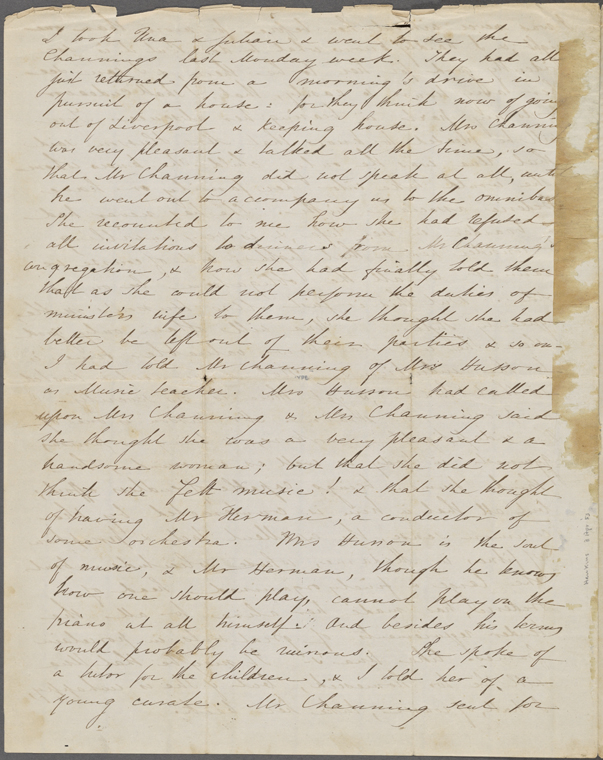 I took Una & Julian & went to see the
Channings last Monday week. They had all
just returned from a morning's drive in
pursuit of a house: for they think now of going
out of Liverpool & keeping house. Mrs Channing
was very pleasant & talked all the time, so
that Mr Channing did not speak at all, until
he went out to accompany us to the omnibus
She recounted to me how she had refused
all invitations to dinners from Mr Channing's
congregation, & how she had finally told them
that as she could not perform the duties of
minister's wife to them, she thought she had
better be left out of their parties & so on—
I had told Mr Channing of Mrs Husson
as Music teacher. Mrs Husson had called
upon Mrs Channing & Mrs Channing said
she thought she was a very pleasant & a
handsome woman; but that she did not
think she felt music! & that she thought
of having Mr Herman, a conductor of
some orchestra. Mrs Husson is the soul
of music, & Mr Herman, though he knows
how one should play, cannot play on the
piano at all himself: And besides his terms
would probably be ruinous. She spoke of
a tutor for the children, & I told her of a
young curate. Mr Channing sent for